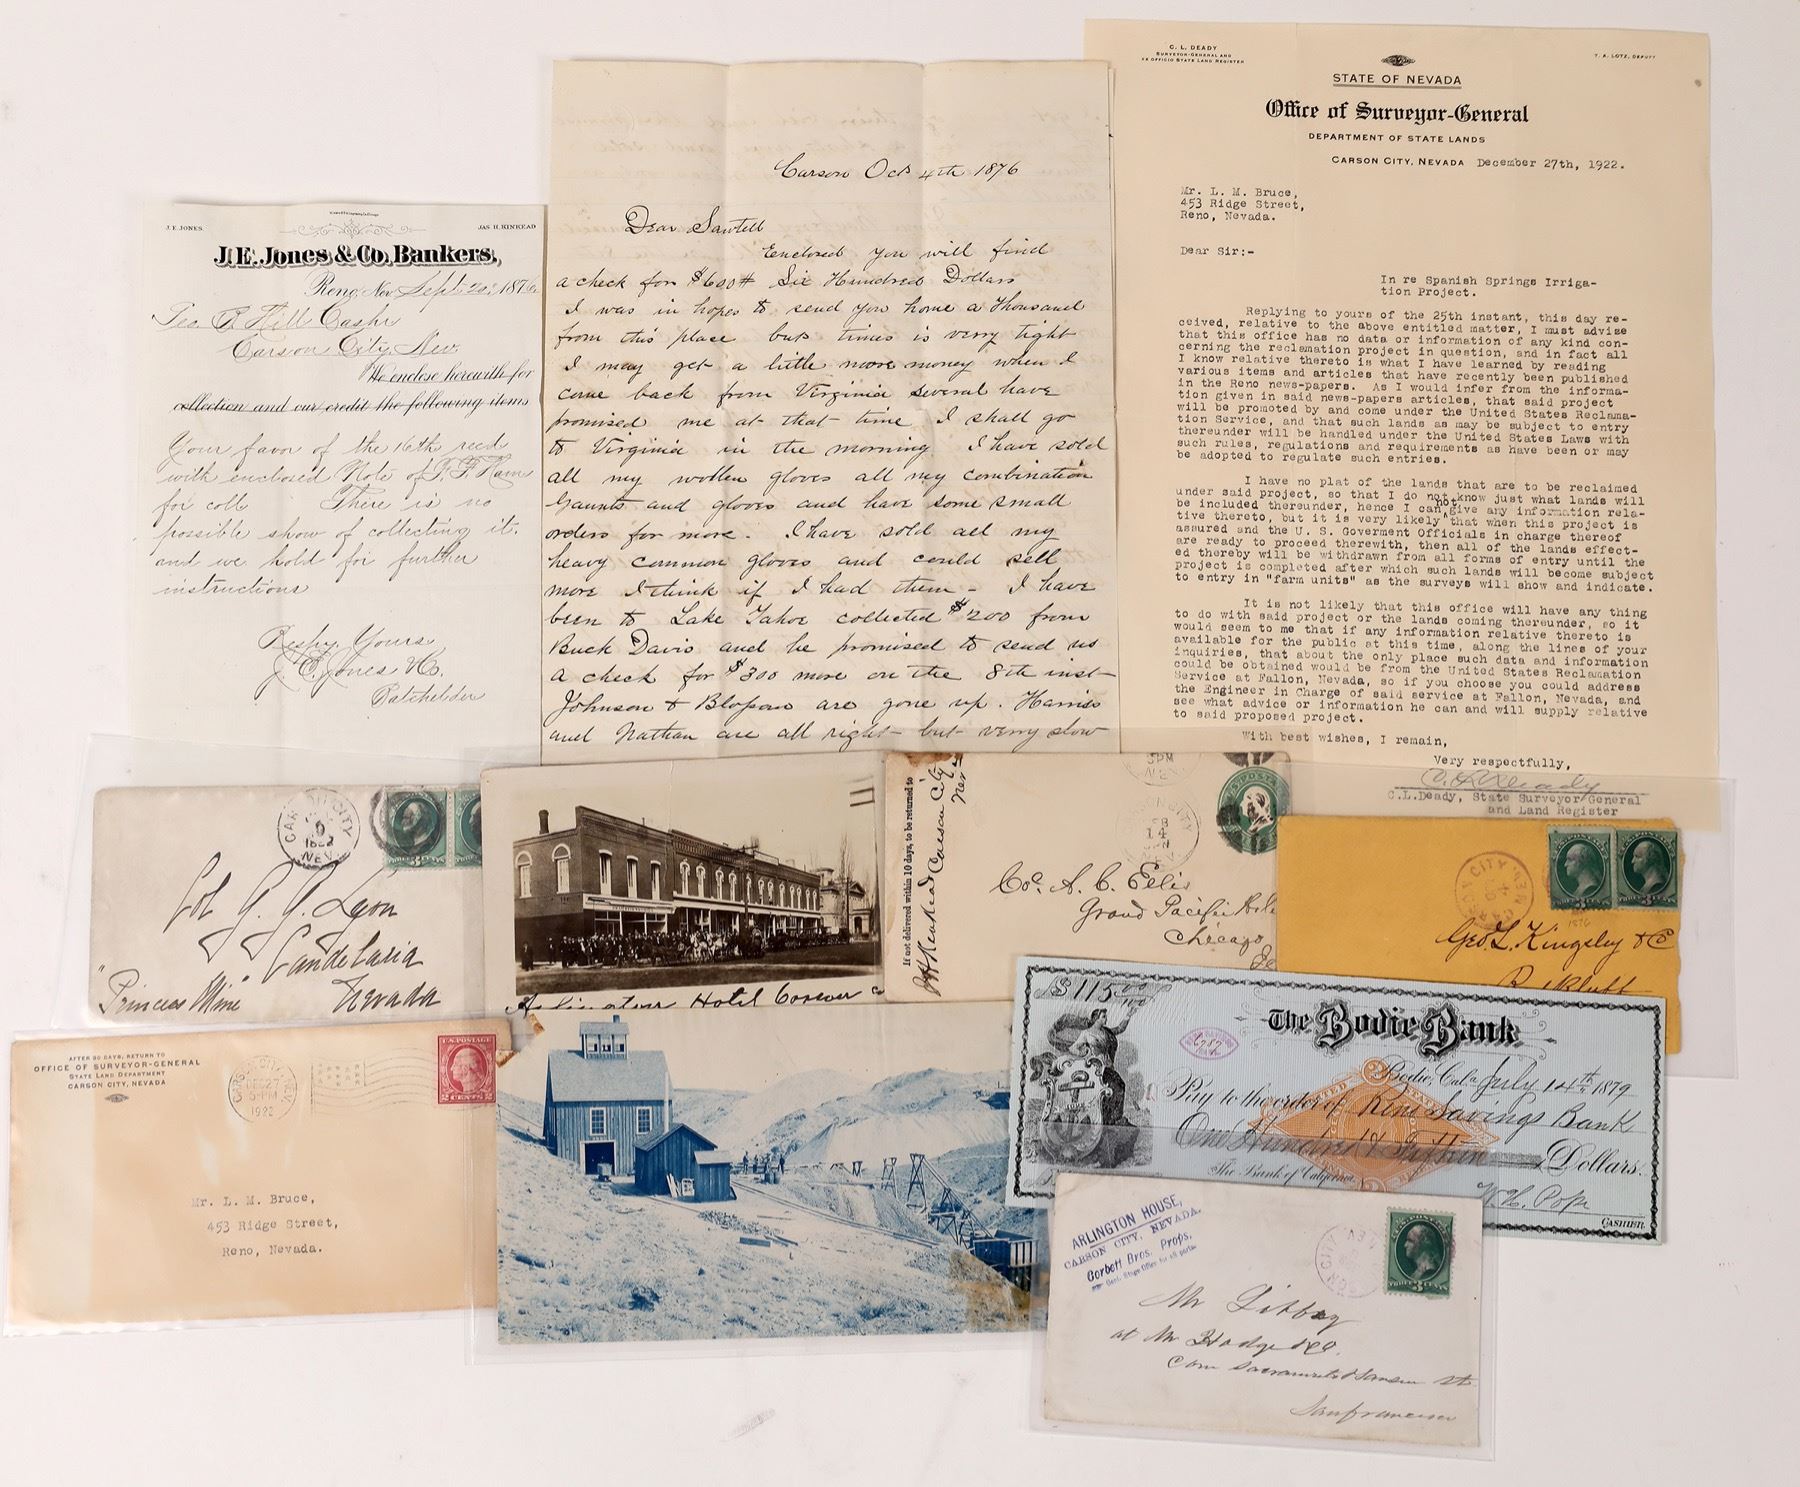 J. E. JONES.
JAS H. KINKEAD
J.E. Jones & Co. Bankers,
Reno, Nev Sept 20, 1876
Geo. R. Hill Cashr
Carson City Nev.
We enclose herewith for
collection and our credit the following items
Your favor of the 16th recd
with enclosed Note of
for coll There is no
possible show of collecting it.
and we hold for further
instructions
Respy. Yours
J. E. Jones & Co.
Batchelder
Carson Oct 4th 1876
Dear Sawtell
Enclosed you will find
a check for $600# Six Hundred Dollars
I was in hopes to send you home a thousand
from this place but times is verry tight
I may get a little more money when I
come back from Virginia several have
promised me at that time I shall go
to Virginia in the morning I have sold
all my wollen gloves all my combination
Gaunts and gloves and have some small
orders for more. I have sold all my
heavy common gloves and could sell
more I think if I had them - I have
been to Lake Tahoe collected $200 from
Buck Davis and he promised to send us
a check for $300 more on the 8th inst
Johnson & are gone up. Harris
and Nathan are all right but verry slow
C. L. DEADY
SURVEYOR-GENERAL AND
EX OFFICIO STATE LAND REGISTER
T. A. LOTZ, DEPUTY
STATE OF NEVADA
Office of Surveyor-General
DEPARTMENT OF STATE LANDS
CARSON CITY, NEVADA December 27th, 1922.
Mr. L. M. Bruce,
453 Ridge Street,
Reno, Nevada.
Dear Sir:-
In re Spanish Springs Irriga-
tion Project.
Replying to yours of the 25th instant, this day re-
ceived, relative to the above entitled matter, I must advise
that this office has no data or information of any kind con-
cerning the reclamation project in question, and in fact all
I know relative thereto is what I have learned by reading
various items and articles that have recently been published
in the Reno news-papers. As I would infer from the informa-
tion given in said news-papers articles, that said project
will be promoted by and come under the United States Reclama-
tion Service, and that such lands as may be subject to entry
thereunder will be handled under the United States Laws with
such rules, regulations and requirements as have been or may
be adopted to regulate such entries.
I have no plat of the lands that are to be reclaimed
under said project, so that I do not know just what lands will
be included thereunder, hence I can not give any information rela-
tive thereto, but it is very likely that when this project is
assured and the U. S. Goverment Officials in charge thereof
are ready to proceed therewith, then all of the lands effect-
ed thereby will be withdrawn from all forms of entry until the
project is completed after which such lands will become subject
to entry in "farm units" as the surveys will show and indicate.
It is not likely that this office will have any thing
to do with said project or the lands coming thereunder, so it
would seem to me that if any information relative thereto is
available for the public at this time, along the lines of your
inquiries, that about the only place such data and information
could be obtained would be from the United States Reclamation
Service at Fallon, Nevada, so if you choose you could address
the Engineer in Charge of said service at Fallon, Nevada, and
see what advice or information he can and will supply relative
to said proposed project.
With best wishes, I remain,
Very respectfully,
C. L. Deady
C.L.Deady, State Surveyor General
and Land Register
CARSON CITY
1882
NEV.
THREE 3 CENTS
Col G. G. Lyon
Candelaria
"Princess Mine" Nevada
Arlington Hotel Carson C
If not delivered within 10 days, to be returned to
Kinkead Carson City
Nev
3PM
NEV
14
Col. A. C. Ellis
Grand Pacific Hotel
Chicago
CARSON CITY NEV
Geo. L. Kingsley & Co
Red Bluff
AFTER 30 DAYS, RETURN TO
OFFICE OF SURVEYOR-GENERAL
STATE LAND DEPARTMENT
CARSON CITY, NEVADA
CARSON CITY, NEV.
DEC 27
5-PM
1922
U.S. POSTAGE
2 CENTS 2
Mr. L. M. Bruce,
453 Ridge Street,
Reno, Nevada.
$115 00/100
The Bodie Bank
787
Bodie, Cal. July 14th 1879
Pay to the order of Reno Savings Bank
One Hundred & Fifteen Dollars.
The Bank of California
CASHIER
ARLINGTON HOUSE,
CARSON CITY, NEVADA.
Corbett Bros. Props.
Genl. Stage Office for all parts
THREE 3 CENTS
Mr Libbey
at Mr Hodge & Co.
Corn Sacramento & Sansom St.
Sanfrancisco